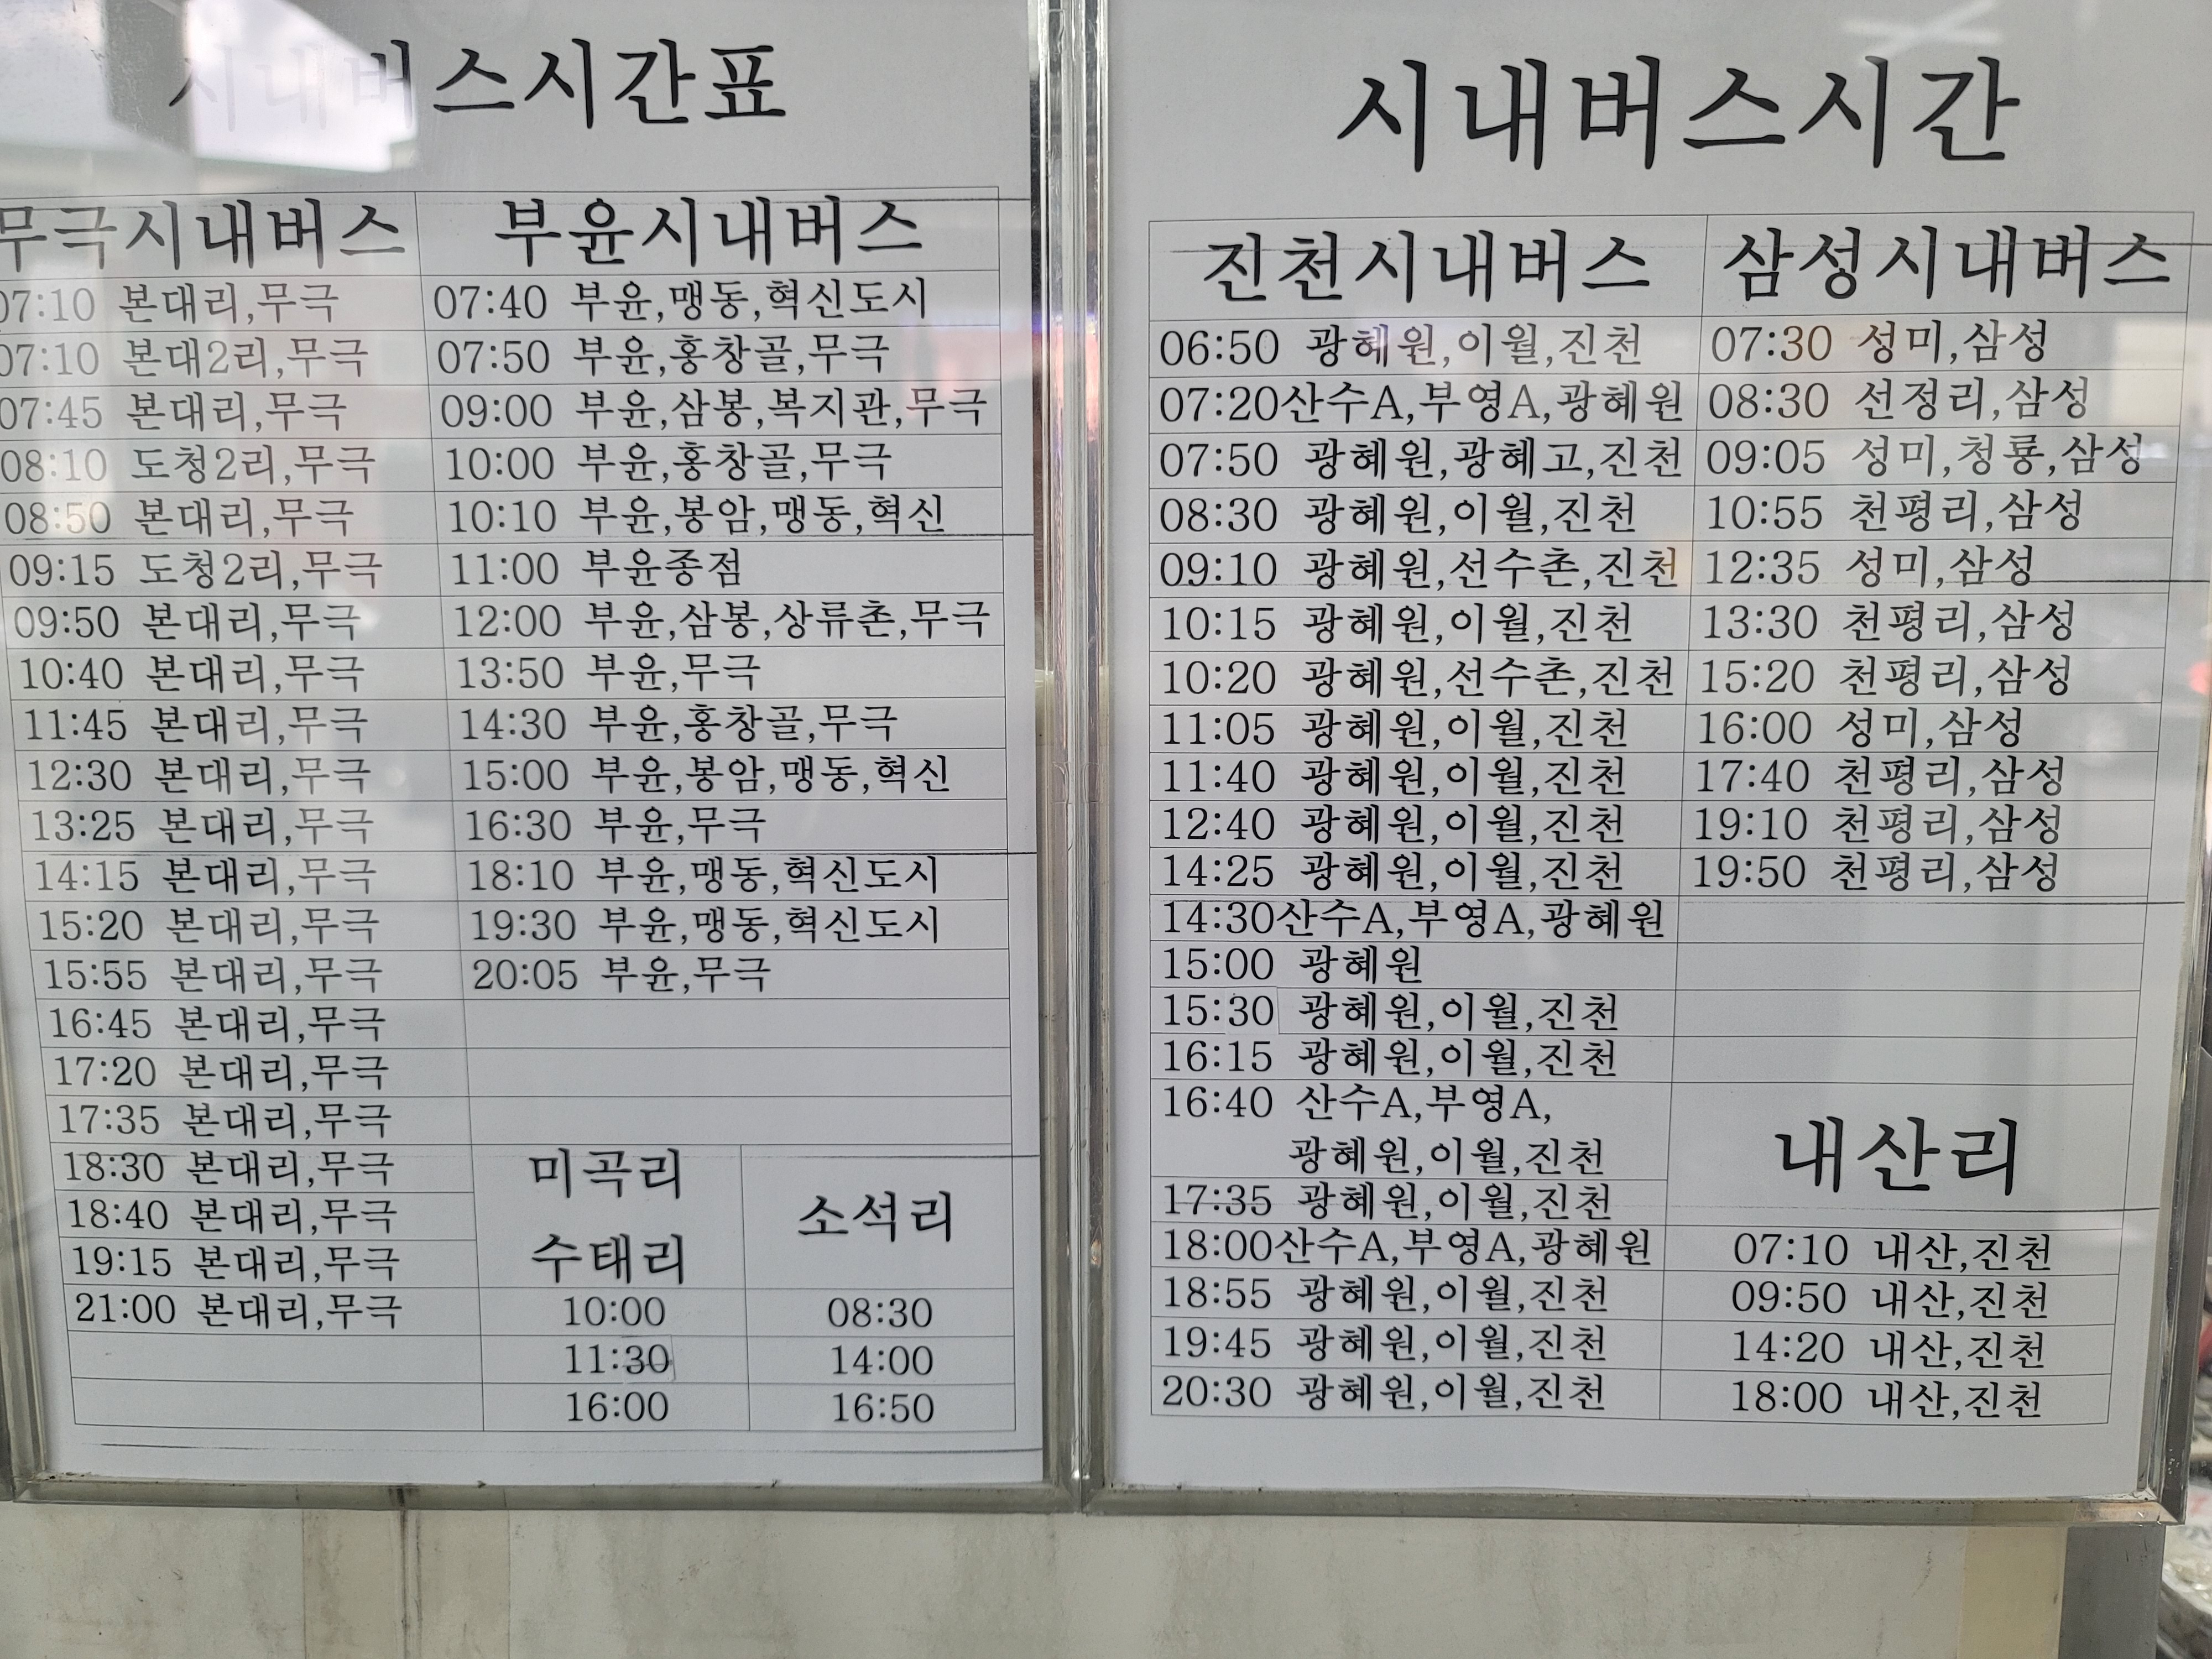 시내버스시간표
무극시내버스
07:10 본대리,무극
07:10 본대2리,무극
07:45 본대리,무극
08:10 도청2리,무극
08:50 본대리,무극
09:15 도청2리,무극
09:50 본대리,무극
10:40 본대리,무극
11:45 본대리,무극
12:30 본대리,무극
13:25 본대리,무극
14:15 본대리,무극
15:20 본대리,무극
15:55 본대리,무극
16:45 본대리,무극
17:20 본대리,무극
17:35 본대리,무극
18:30 본대리,무극
18:40 본대리,무극
19:15 본대리,무극
21:00 본대리,무극
부윤시내버스
07:40 부윤,맹동,혁신도시
07:50 부윤,홍창골,무극
09:00 부윤,삼봉,복지관,무극
10:00 부윤,홍창골,무극
10:10 부윤,봉암,맹동,혁신
11:00 부윤종점
12:00 부윤,삼봉,상류촌,무극
13:50 부윤,무극
14:30 부윤,홍창골,무극
15:00 부윤,봉암,맹동,혁신
16:30 부윤,무극
18:10 부윤,맹동,혁신도시
19:30 부윤,맹동,혁신도시
20:05 부윤,무극
미곡리
수태리
10:00
11:30
16:00
소석리
08:30
14:00
16:50
시내버스시간
진천시내버스
06:50 광혜원,이월,진천
07:20산수A,부영A,광혜원
07:50 광혜원,광혜고,진천
08:30 광혜원,이월,진천
09:10 광혜원,선수촌,진천
10:15 광혜원,이월,진천
10:20 광혜원,선수촌,진천
11:05 광혜원,이월,진천
11:40 광혜원,이월,진천
12:40 광혜원,이월,진천
14:25 광혜원,이월,진천
14:30산수A,부영A,광혜원
15:00 광혜원
15:30 광혜원,이월,진천
16:15 광혜원,이월,진천
16:40 산수A,부영A,
광혜원,이월,진천
17:35 광혜원,이월,진천
18:00산수A,부영A,광혜원
18:55 광혜원,이월,진천
19:45 광혜원,이월,진천
20:30 광혜원,이월,진천
삼성시내버스
07:30 성미,삼성
08:30 선정리,삼성
09:05 성미,청룡,삼성
10:55 천평리,삼성
12:35 성미,삼성
13:30 천평리,삼성
15:20 천평리,삼성
16:00 성미,삼성
17:40 천평리,삼성
19:10 천평리,삼성
19:50 천평리,삼성
내산리
07:10 내산,진천
09:50 내산,진천
14:20 내산,진천
18:00 내산,진천